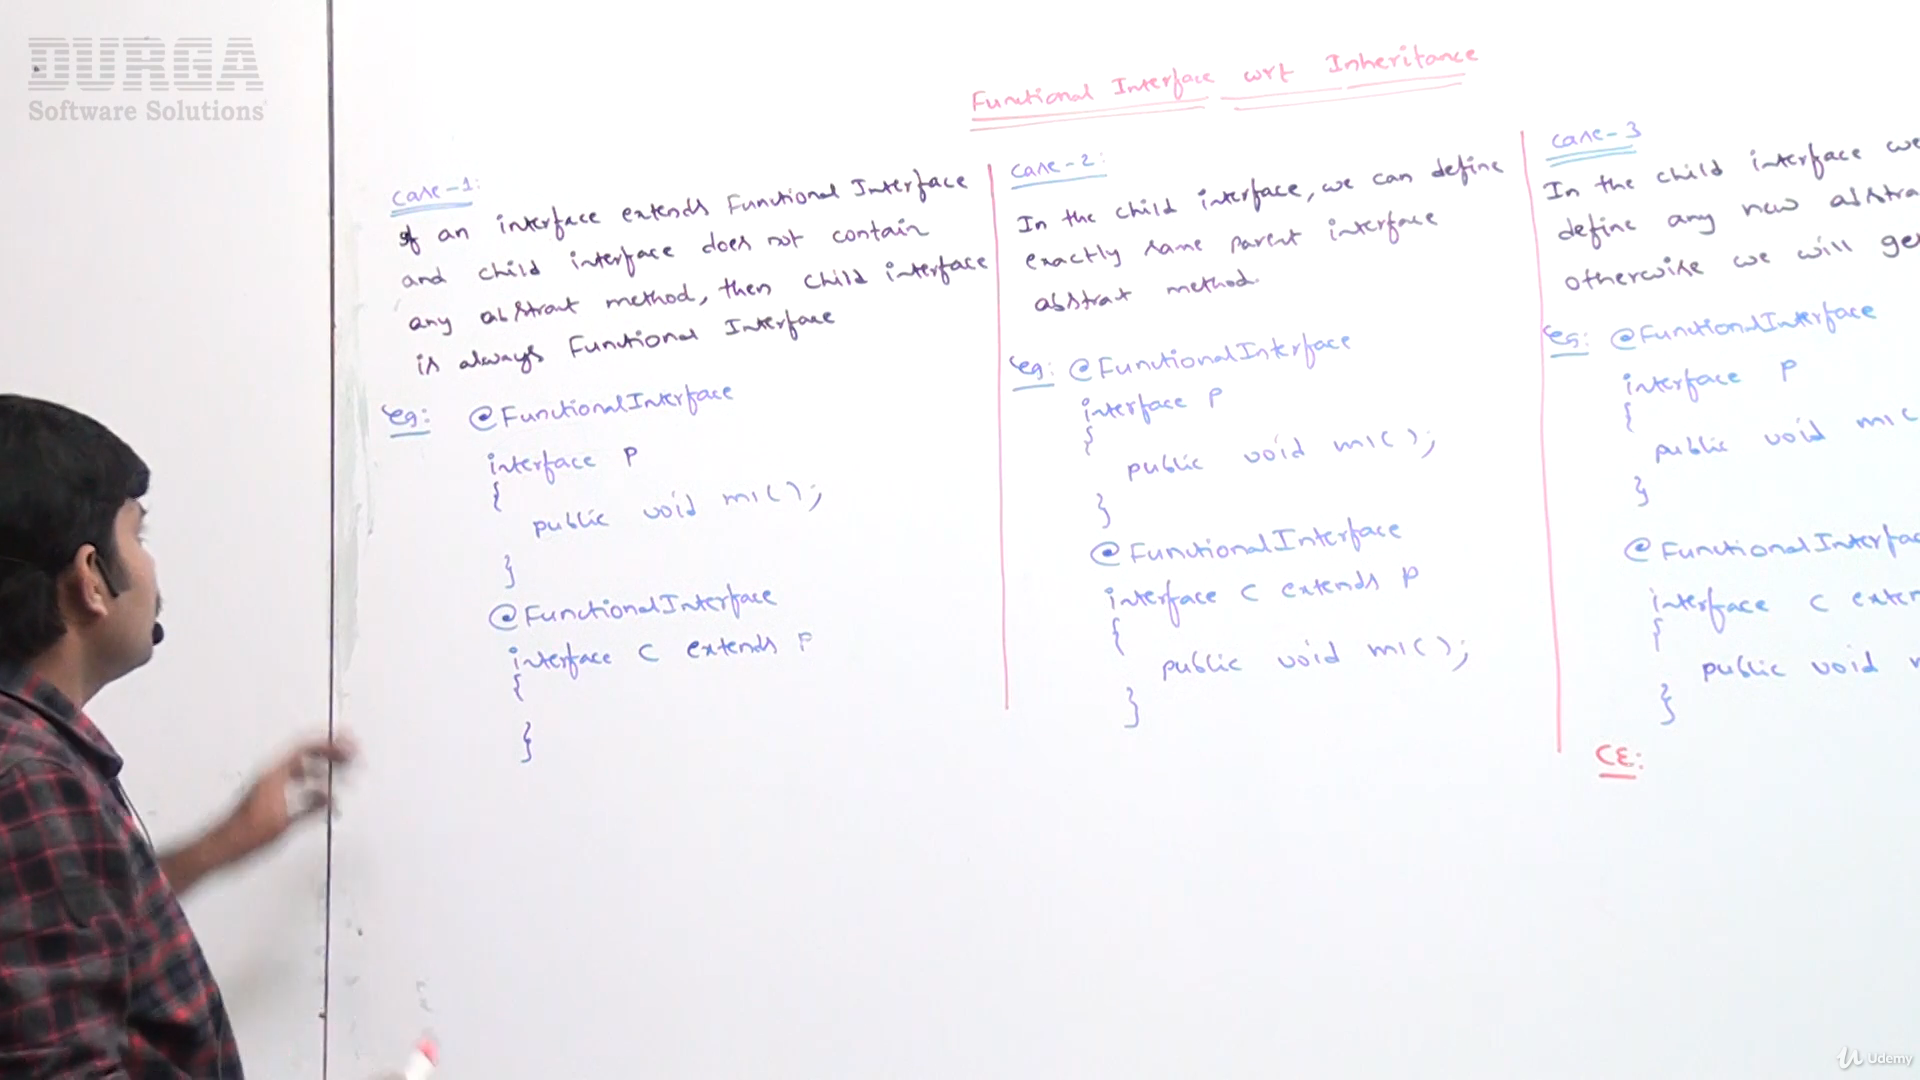 DURGA
Software Solutions
Functional Interface wrt Inheritance
Case-1:
If an interface extends Functional Interface
and child interface does not contain
any abstract method, then child interface
is always Functional Interface
eg: @FunctionalInterface
interface P
{
public void m1();
}
@FunctionalInterface
interface C extends P
{
}
Case-2:
In the child interface, we can define
exactly same parent interface
abstract method.
eg: @FunctionalInterface
interface P
{
public void m1();
}
@FunctionalInterface
interface C extends P
{
public void m1();
}
Case-3
In the child interface we
define any new abstra
otherwise we will ge
eg: @FunctionalInterface
interface P
{
public void m1(
}
@FunctionalInterfac
interface C exten
{
public void
}
CE:
Udemy